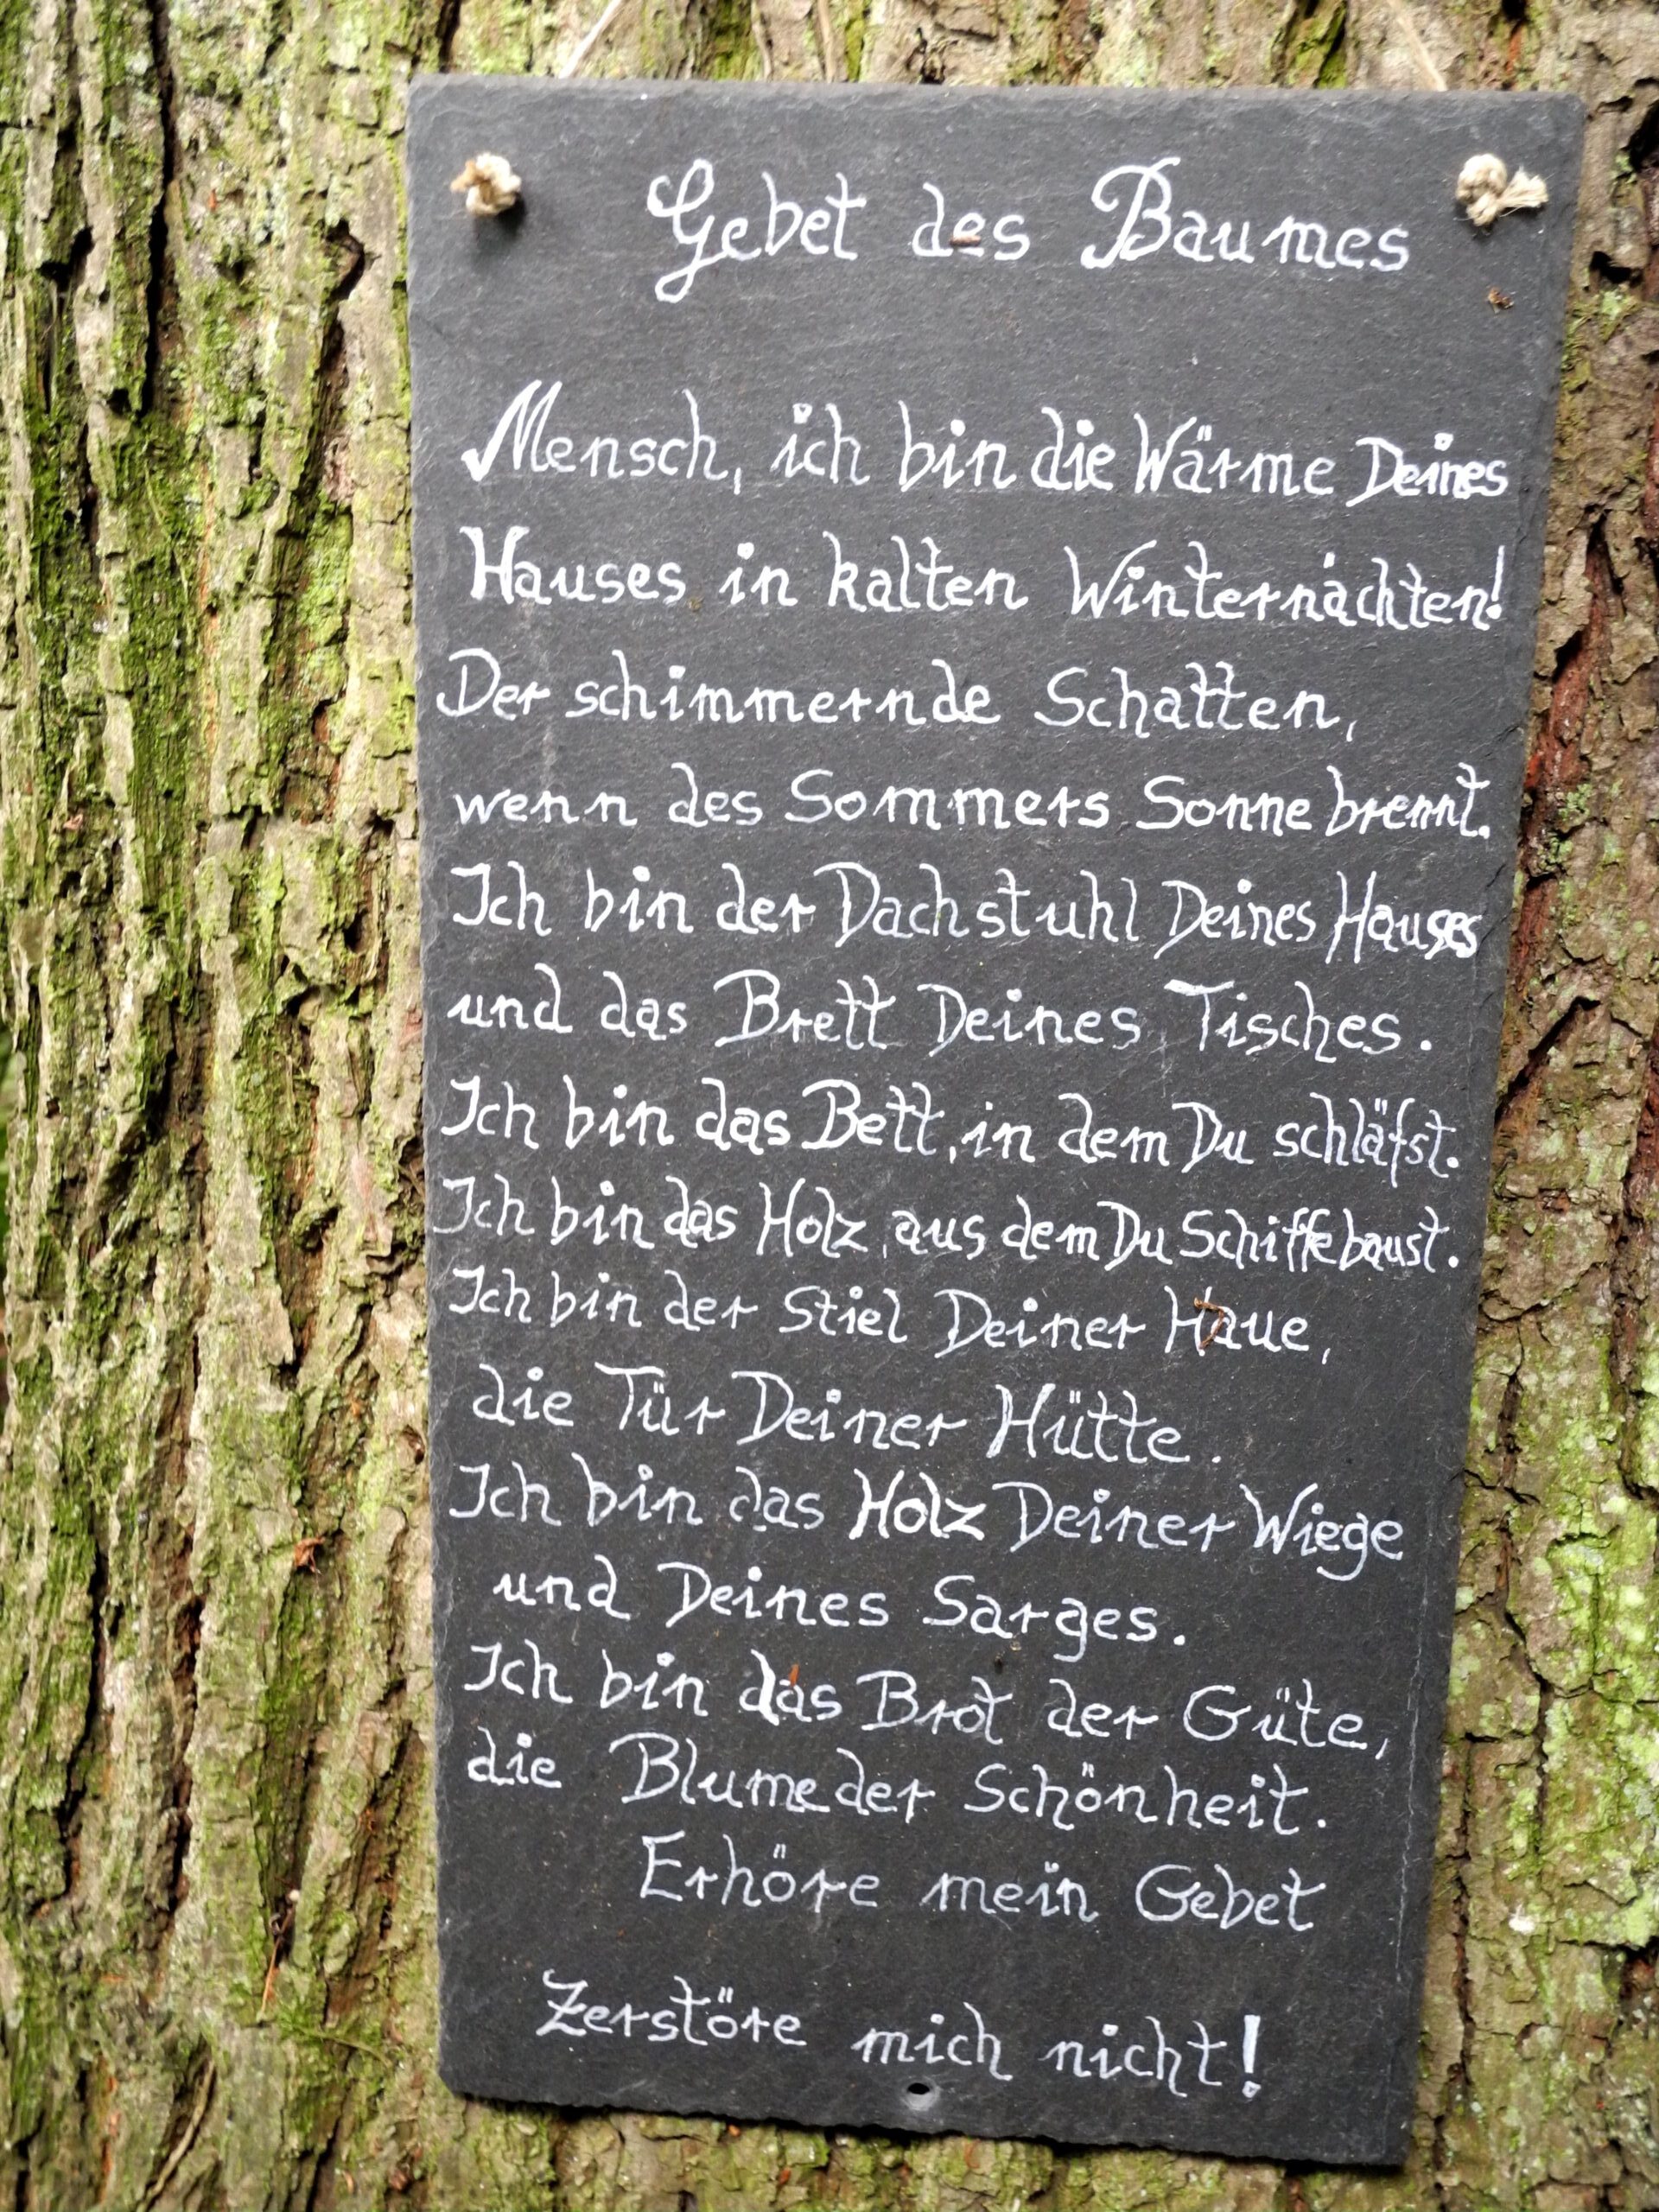 Gebet des Baumes
Mensch, ich bin die Wärme Deines
Hauses in kalten Winternächten!
Der schimmernde Schatten,
wenn des Sommers Sonne brennt.
Ich bin der Dachstuhl Deines Hauses
und das Brett Deines Tisches.
Ich bin das Bett, in dem Du schläfst.
Ich bin das Holz, aus dem Du Schiffe baust.
Ich bin der Stiel Deiner Haue,
die Tür Deiner Hütte.
Ich bin das Holz Deiner Wiege
und Deines Sarges.
Ich bin das Brot der Güte,
die Blume der Schönheit.
Erhöre mein Gebet
Zerstöre mich nicht!